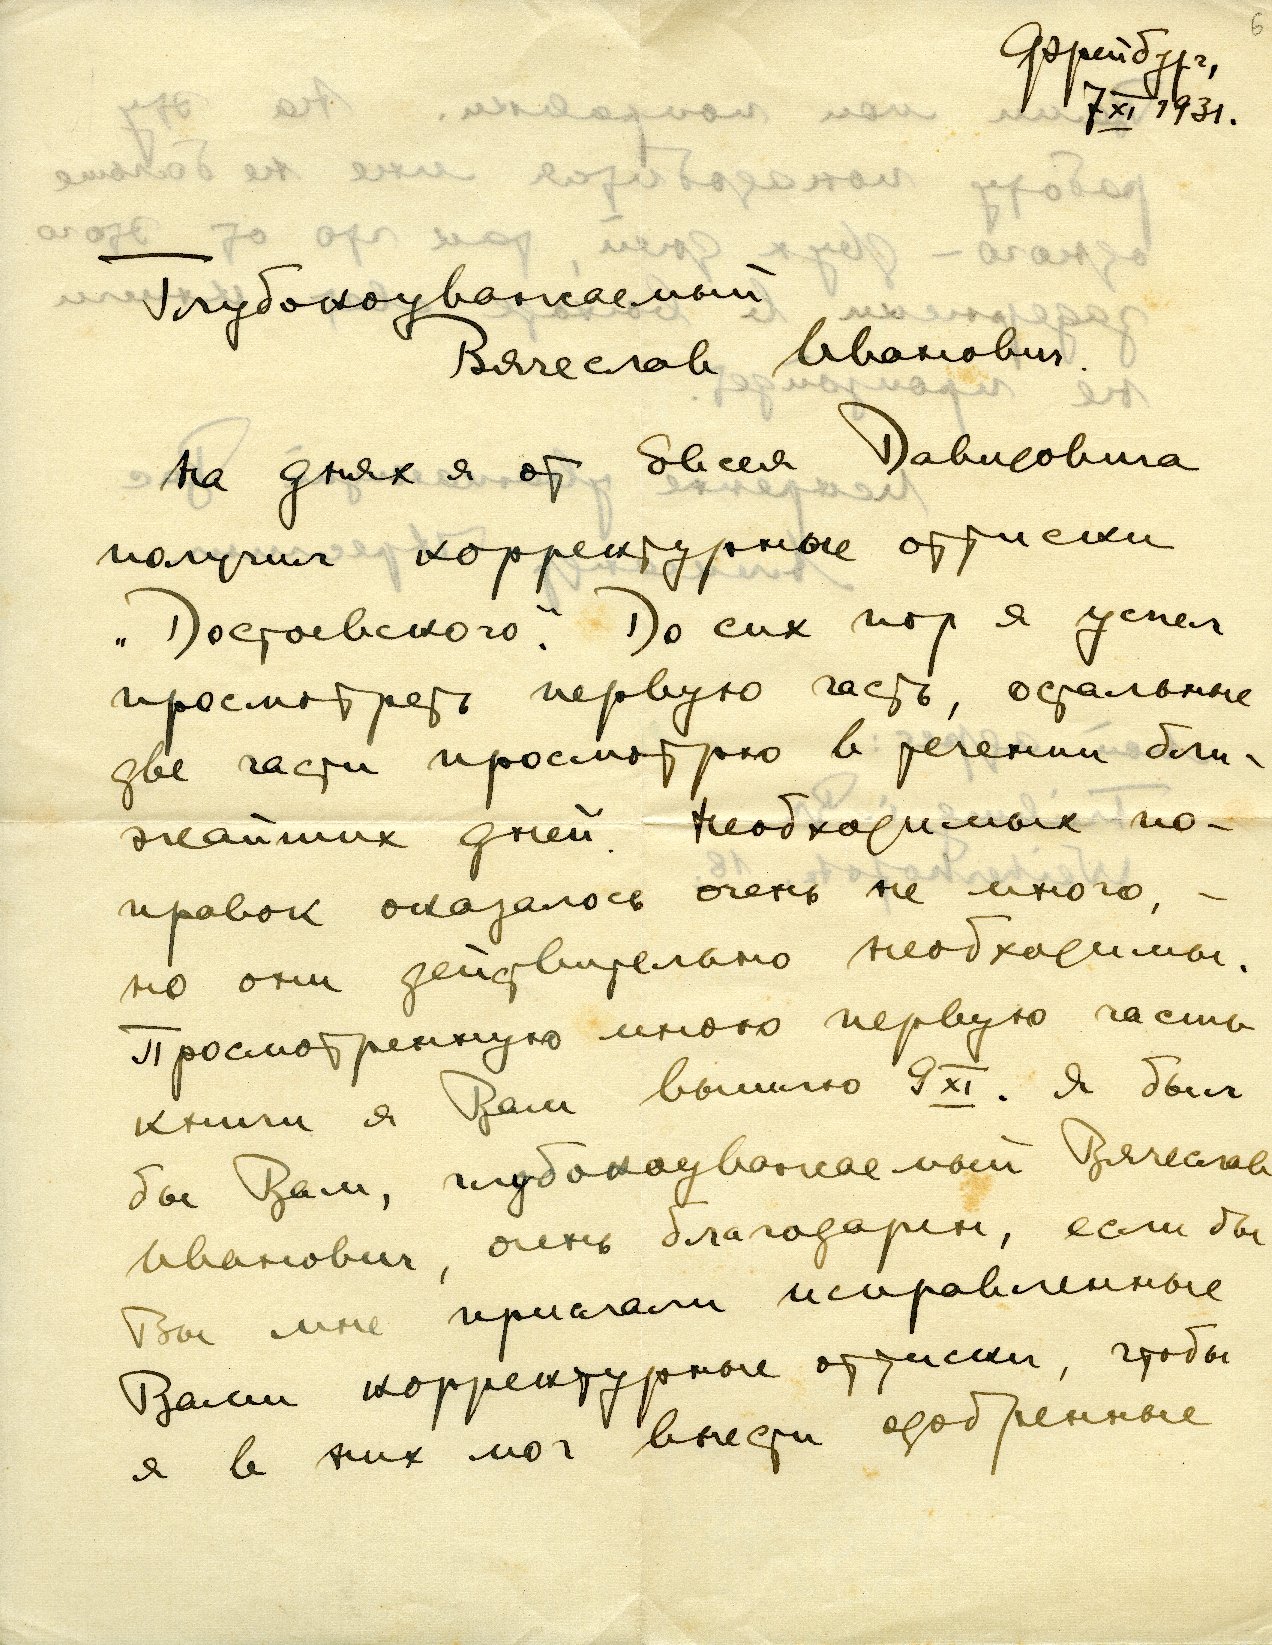 6
Фрейбург,
7 XI 1931.
Глубокоуважаемый
Вячеслав Иванович.
На днях я от Евсея Давидовича
получил корректурные оттиски
„Достоевского". До сих пор я успел
просмотреть первую часть, остальные
две части просмотрю в течении бли-
жайших дней. Необходимых по-
правок оказалось очень не много, –
но они действительно необходимы.
Просмотренную мною первую часть
книги я Вам вышлю 9 XI. Я был
бы Вам, глубокоуважаемый Вячеслав
Иванович, очень благодарен, если бы
Вы мне прислали исправленные
Вами корректурные оттиски, чтобы
я в них мог внести одобренные